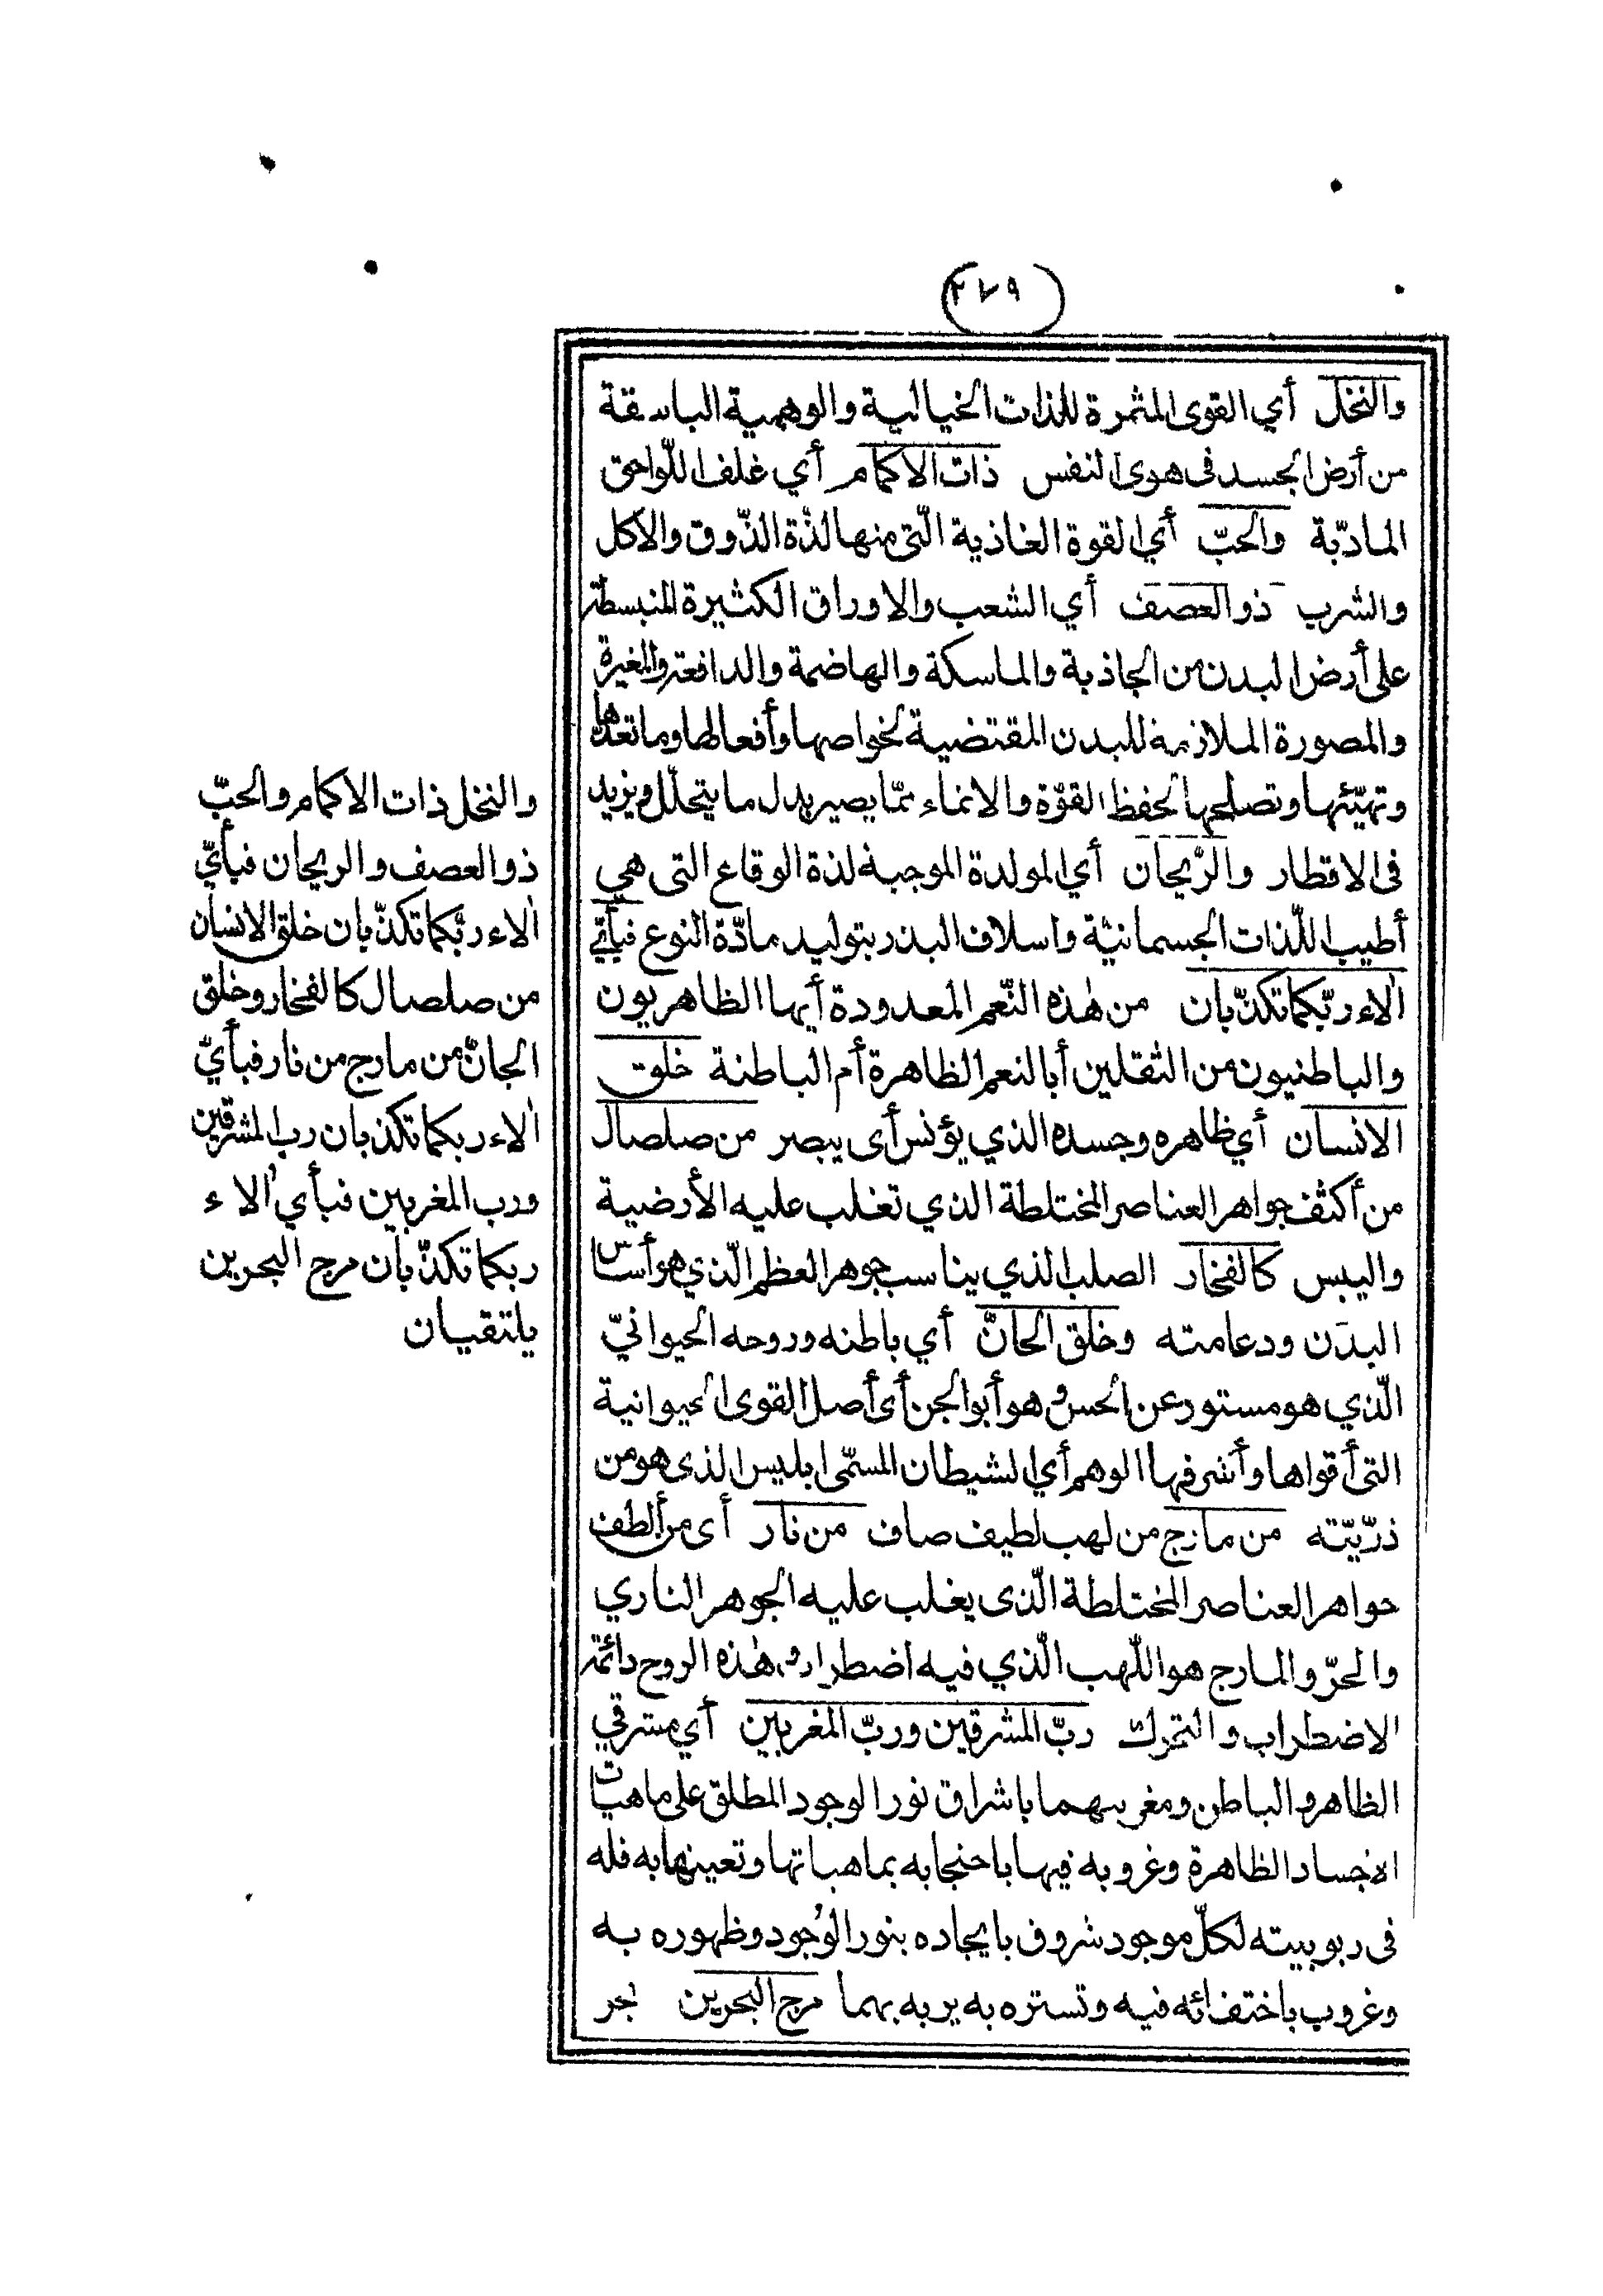 (٢٧٩)
والنخل أي القوى المثمرة للذات الخيالية والوهمية الباسقة
من أرض الجسد فى هوى النفس ذات الاكمام أي غلف اللّواحق
المادّية والحبّ أي القوة الغاذية الّتى منها لذة الذّوق والأكل
والشرب ذو العصف أي الشعب والاوراق الكثيرة المنبسطة
على أرض البدن من الجاذبة والماسكة والهاضمة والدافعة والمغيرة
والمصورة الملازمة للبدن المقتضية لخواصها وأفعالها وما تعدّها
وتهيّئها وتصلحها لحفظ القوّة والانماء ممّا يصير بدل ما يتحلّل ويزيد
فى الاقطار والرّيحان أي المولدة الموجبة لذة الوقاع التى هي
أطيب اللّذات الجسمانيّة واسلاف البذر بتوليد مادّة النوع فبأيّ
اٰلاء ربّكما تكذّبان من هٰذه النّعم المعدودة أيها الظاهريون
والباطنيون من الثقلين أبالنعم الظاهرة أم الباطنة خلق
الانسان أي ظاهره وجسده الذي يؤنس أى يبصر من صلصال
من أكثف جواهر العناصر المختلطة الذي تغلب عليه الأرضية
واليبس كالفخار الصلب الذي يناسب جوهر العظم الّذي هو أساس
البدن ودعامته وخلق الجانّ أي باطنه وروحه الحيوانيّ
الّذي هو مستور عن الحس وهو أبو الجن أى أصل القوى الحيوانية
التى أقواها وأشرفها الوهم أي الشيطان المسمّى ابليس الذى هو من
ذرّيّته من مارج من لهب لطيف صاف من نار أى من ألطف
جواهر العناصر المختلطة الّذى يغلب عليه الجوهر الناري
والحرّ والمارج هو اللّهب الّذي فيه اضطراب وهٰذه الروح دائمة
الاضطراب والتحرك ربّ المشرقين وربّ المغربين أي مشرقي
الظاهر والباطن ومغربيهما باشراق نور الوجود المطلق على ماهيات
الاجساد الظاهرة وغروبه فيها باحتجابه بماهياتها وتعينها به فله
فى ربوبيته لكلّ موجود شروق بايجاده بنور الوجود وظهوره به
وغروب باختفائه فيه وتستره به يربه بهما مرج البحرين بحر
والنخل ذات الاكمام والحبّ
ذو العصف والريحان فبأيّ
اٰلاء ربّكما تكذّبان خلق الانسان
من صلصال كالفخار وخلق
الجانّ من مارج من نار فبأيّ
اٰلاء ربكما تكذبان رب المشرقين
ورب المغربين فبأي اٰلاء
ربكما تكذّبان مرج البحرين
يلتقيان